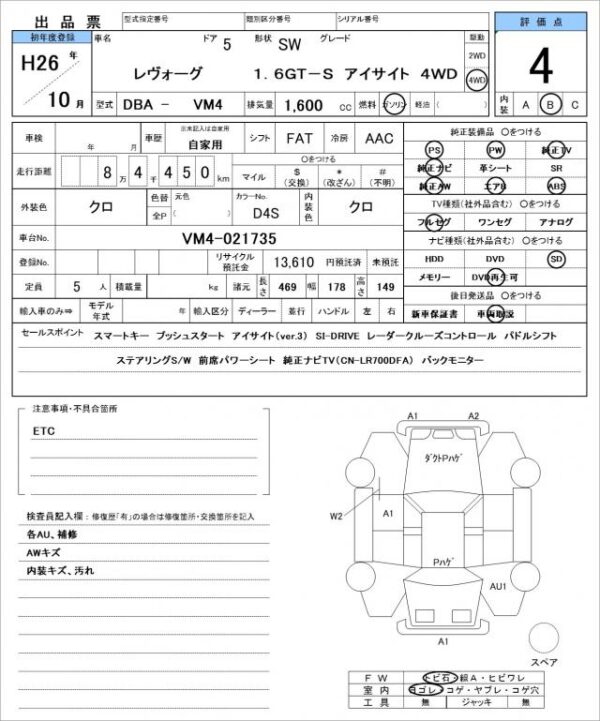 出品票 型式指定番号 類別区分番号 シリアル番号 評価点
初年度登録 車名 ドア 5 形状 SW グレード 駆動
H26年 レヴォーグ 1.6GT-S アイサイト 4WD 2WD 4
10月 4WD
型式 DBA - VM4 排気量 1,600 cc 燃料 ガソリン 軽油 ( ) 内装 A B C
車検 年 月 車歴 出来記入は自家用 自家用 シフト FAT 冷房 AAC 純正装備品 ○をつける
PS PW 純正TV
走行距離 8万4千450km ○をつける 純正ナビ 革シート SR
マイル $(交換) *(改ざん) #(不明) 純正AW エアB ABS
外装色 クロ 色替 元色 全P カラーNo. D4S 内装色 クロ TV種類(社外品含む) ○をつける
フルセグ ワンセグ アナログ
車台No. VM4-021735 ナビ種類(社外品含む) ○をつける
登録No. リサイクル預託金 13,610 円預託済 未預託 HDD DVD SD
定員 5 人 積載量 kg 諸元 長さ 469 幅 178 高さ 149 メモリー DVD再生可
後日発送品 ○をつける
輸入車のみ⇒ モデル年式 年 輸入区分 ディーラー 並行 ハンドル 左 右 新車保証書 車両取説
セールスポイント スマートキー プッシュスタート アイサイト(ver.3) SI-DRIVE レーダークルーズコントロール パドルシフト
ステアリングS/W 前席パワーシート 純正ナビTV(CN-LR700DFA) バックモニター
注意事項・不具合箇所
ETC
検査員記入欄:修復歴「有」の場合は修復箇所・交換箇所を記入
各AU、補修
AWキズ
内装キズ、汚れ
A1 A2
ダクトPハゲ
W2 A1
Pハゲ
AU1
A1
スペア
FW トビ石・線A・ヒビワレ
室内 ヨゴレ・コゲ・ヤブレ・コゲ穴
工具 無 ジャッキ 無